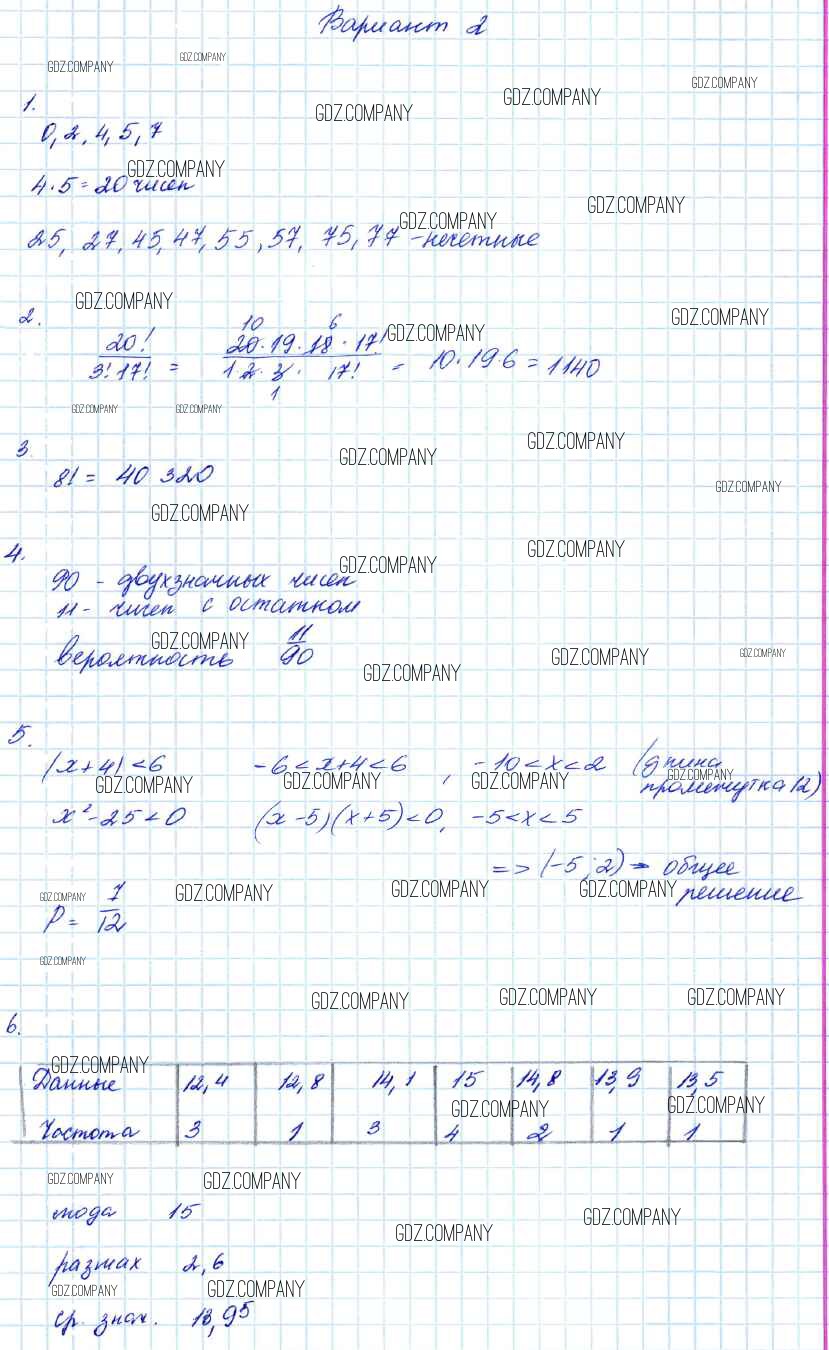 Вариант 2
GDZ.COMPANY
GDZ.COMPANY
GDZ.COMPANY
GDZ.COMPANY
GDZ.COMPANY
1.
0, 2, 4, 5, 7
GDZ.COMPANY
4·5=20 чисел
GDZ.COMPANY
GDZ.COMPANY
25, 27, 45, 47, 55, 57, 75, 77 - нечетные
GDZ.COMPANY
GDZ.COMPANY
GDZ.COMPANY
2.
10 6
20!/3!17! = 20·19·18·17!/1·2·3·17! = 10·19·6 = 1140
1
GDZ.COMPANY GDZ.COMPANY
GDZ.COMPANY
GDZ.COMPANY
3.
8! = 40 320
GDZ.COMPANY
GDZ.COMPANY
4.
GDZ.COMPANY
GDZ.COMPANY
90 - двухзначных чисел
11 - чисел с остатком
GDZ.COMPANY
вероятность 11/90
GDZ.COMPANY
GDZ.COMPANY
GDZ.COMPANY
5.
|x+4|<6 -6<x+4<6, -10<x<2 (длина
промежутка 12)
GDZ.COMPANY GDZ.COMPANY GDZ.COMPANY GDZ.COMPANY
x²-25<0 (x-5)(x+5)<0, -5<x<5
=> (-5; 2) - общее
решение
GDZ.COMPANY GDZ.COMPANY GDZ.COMPANY GDZ.COMPANY
P = 7/12
GDZ.COMPANY
GDZ.COMPANY GDZ.COMPANY GDZ.COMPANY
6.
GDZ.COMPANY
Данные 12,4 12,8 14,1 15 14,8 13,9 13,5
GDZ.COMPANY GDZ.COMPANY
Частота 3 1 3 4 2 1 1
GDZ.COMPANY GDZ.COMPANY
мода 15
GDZ.COMPANY GDZ.COMPANY
размах 2,6
GDZ.COMPANY GDZ.COMPANY
ср. знач. 13,95